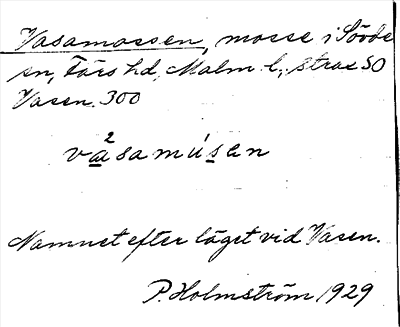 Vasamossen, mosse i Sövde
sn, Färs hd, Malm. l., strax SO
Vasen. 300
va²samúsen
Namnet efter läget vid Vasen.
P. Holmström 1929